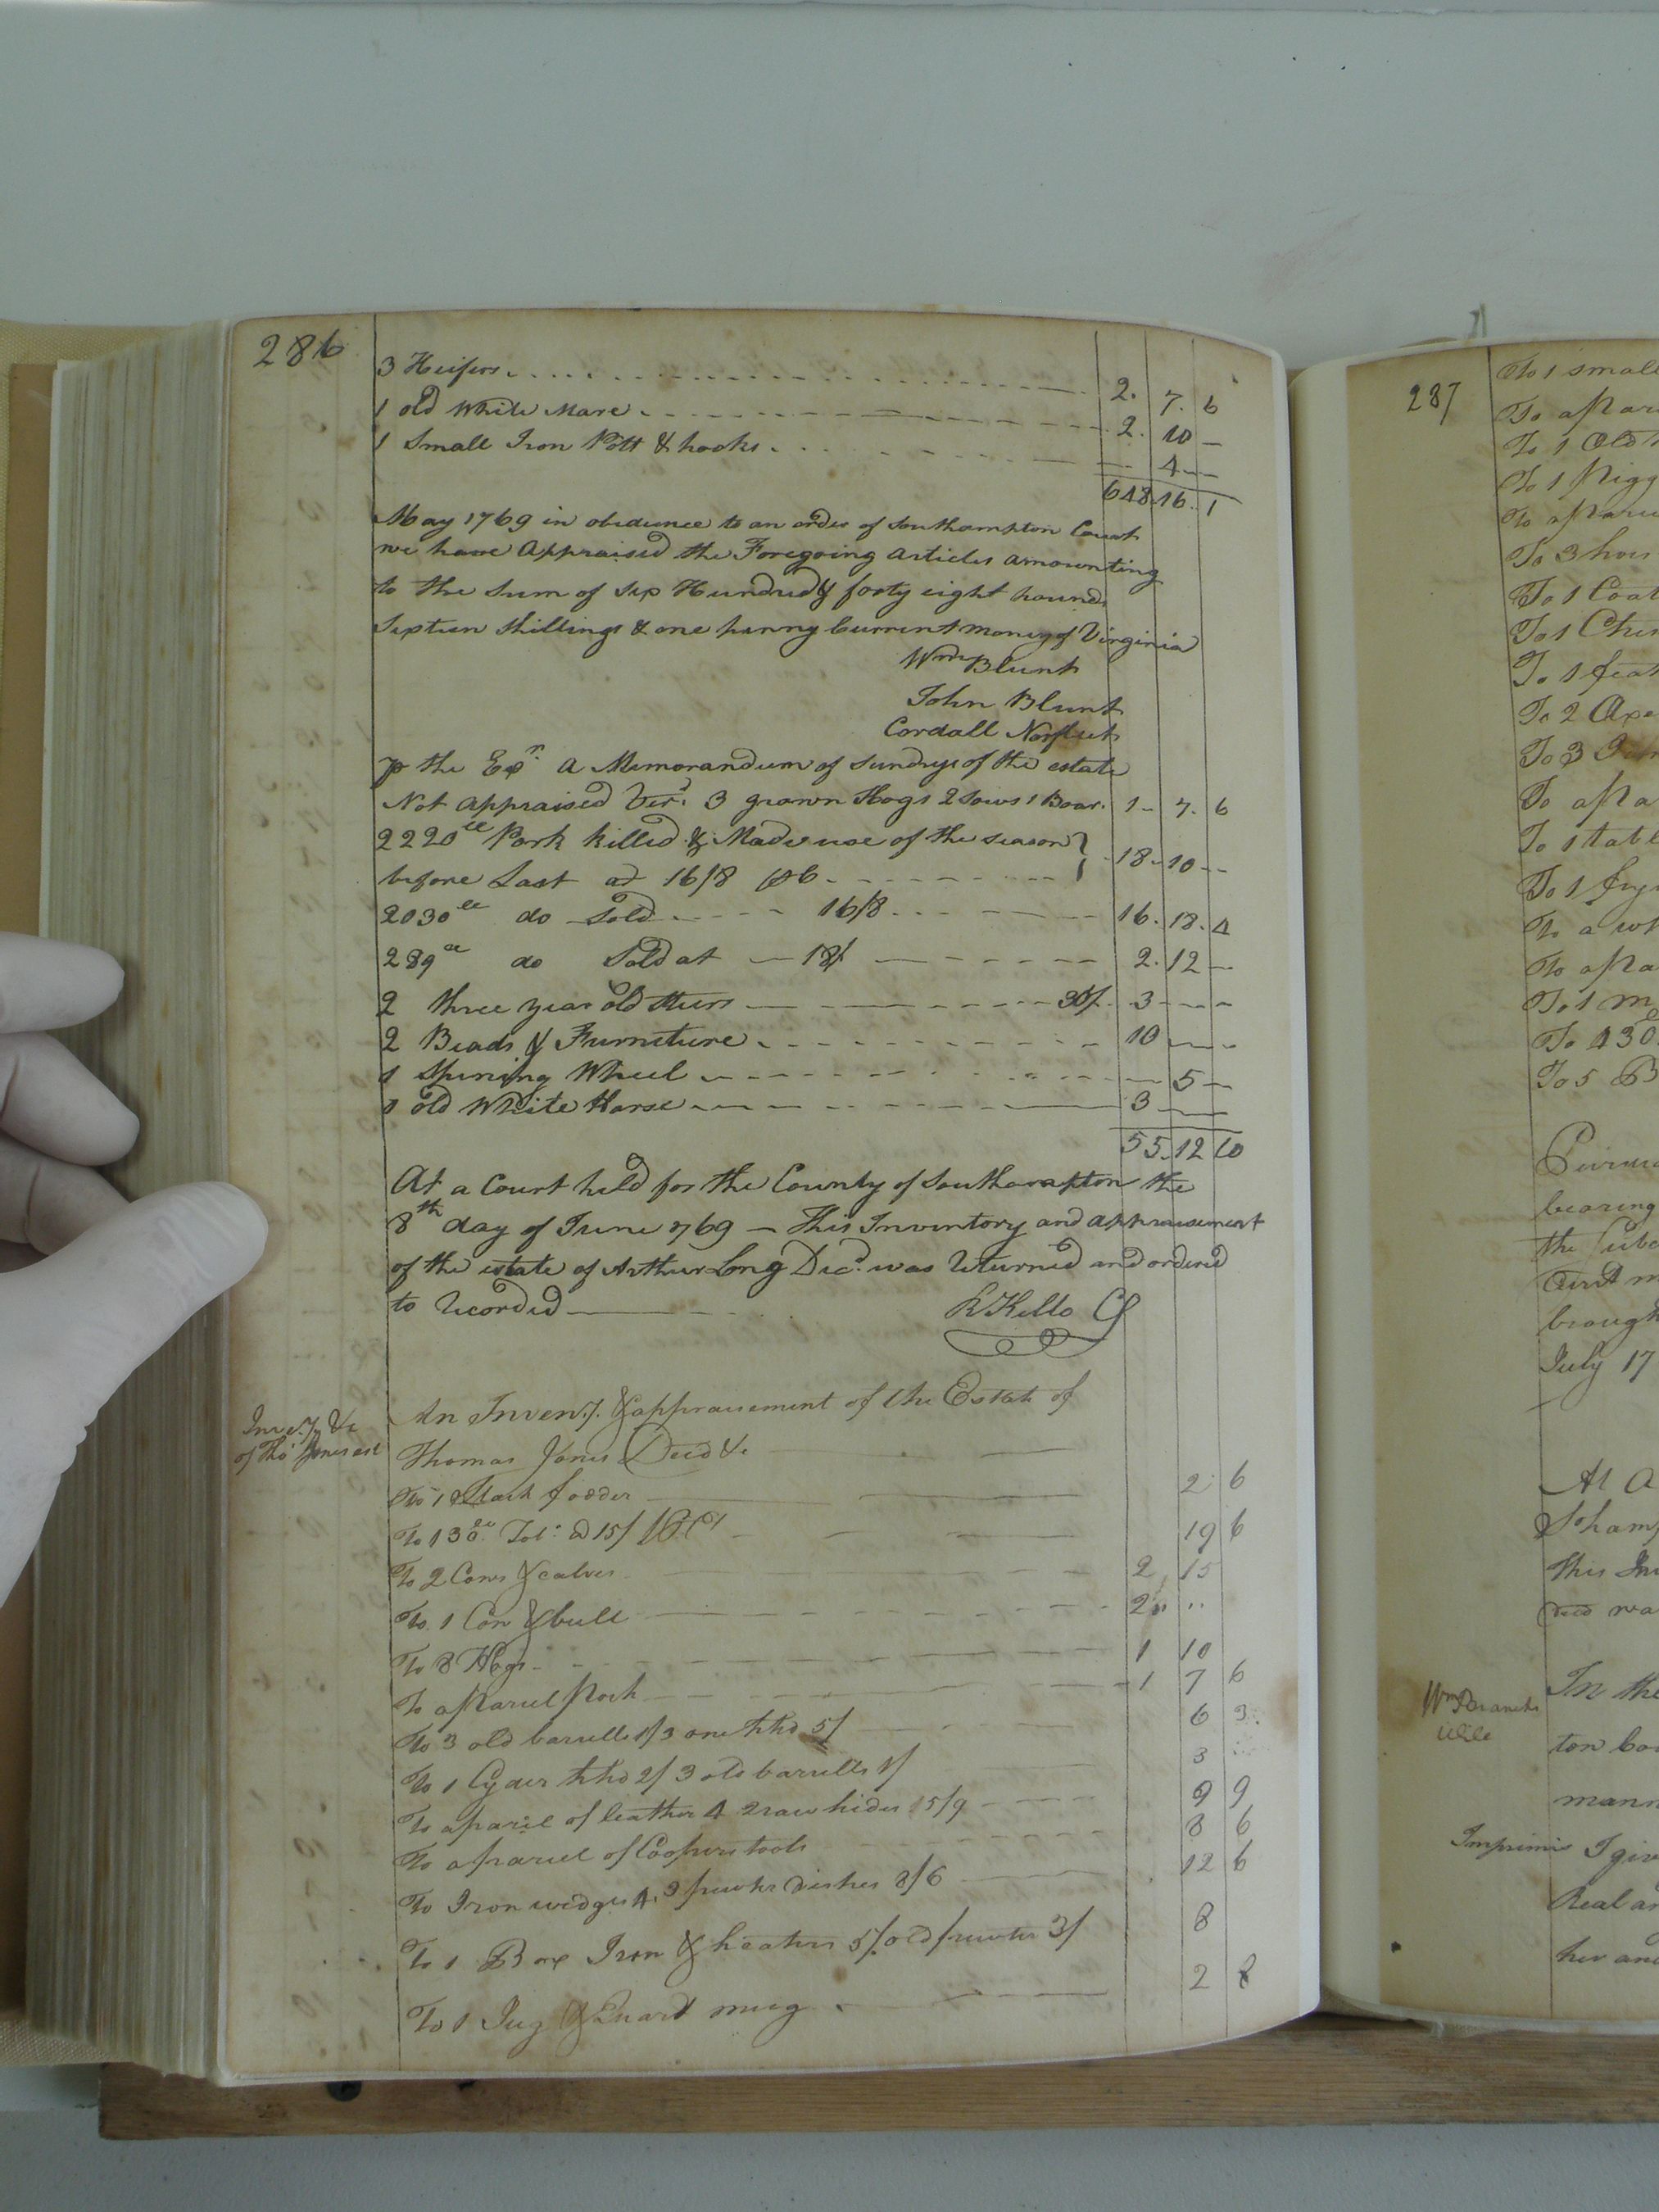 286
3 Heifers 2. 7. 6
1 old White Mare 2. 10 —
1 Small Iron Pott & hooks — 4 —
648.16.1
May 1769 in obedience to an order of Southampton Court
we have Appraised the Foregoing articles amounting
to the Sum of Six Hundred & forty eight pounds
Sixteen Shillings & one penny Current money of Virginia
Wm Blunt
John Blunt
Cordall Norfleet
p the Exr. A Memorandum of Sundrys of the estate
Not appraised Vizt. 3 grown Hogs 2 Sows 1 Boar. 1 - 7. 6
2220 lb Pork killed & Made use of the season
before Last at 16/8 18 - 10 -
2030 lb do Sold 16/8 16. 18. 4
289 do Sold at 18/ 2. 12 —
2 three year old Steers 30/. 3 — —
2 Beads & Furniture 10 — —
1 Spining Wheel — 5 —
1 old White Horse 3 — —
55.12 10
At a Court held for the County of Southampton the
8th day of June 1769 — This Inventory and appraisement
of the estate of Arthur Long Decd. was Returned and ordered
to Recorded
R Kello Cl
Inve.y &c
of Tho Jones est
An Inven.y. & appraisement of the Estate of
Thomas Jones Decd &c
To 1 Stack fodder 2 6
To 130 lb Tob: @ 15/ 19 6
To 2 Cows & calves 2 15
To 1 Cow & bull 2 ..
To 8 Hogs 1 10
To a Parcel Pork 1 7 6
To 3 old barrells 1/3 one hhd 5/ 6 3
To 1 Cyder hhd 2/ 3 old barrells 1/ 3
To a parcel of leather 4 2 raw hides 5/9 9 9
To a parcel of Coopers tools 8 6
To Iron wedges 4. 3 pewter dishes 8/6 12 6
To 1 Box Iron & heaters 5/. old pewter 3/ 8
To 1 Jug & Quart mug 2 8
287
To 1 small
To 1 Old
To 3
To 1
To 2 Axe
To 3
To 1
To a
To 1
To 430
To 5 B
bearing
the
brough
July 17
At A
This In
was
Wm Branch
Will
In the
ton
mann
Imprimis I giv
Real an
her and